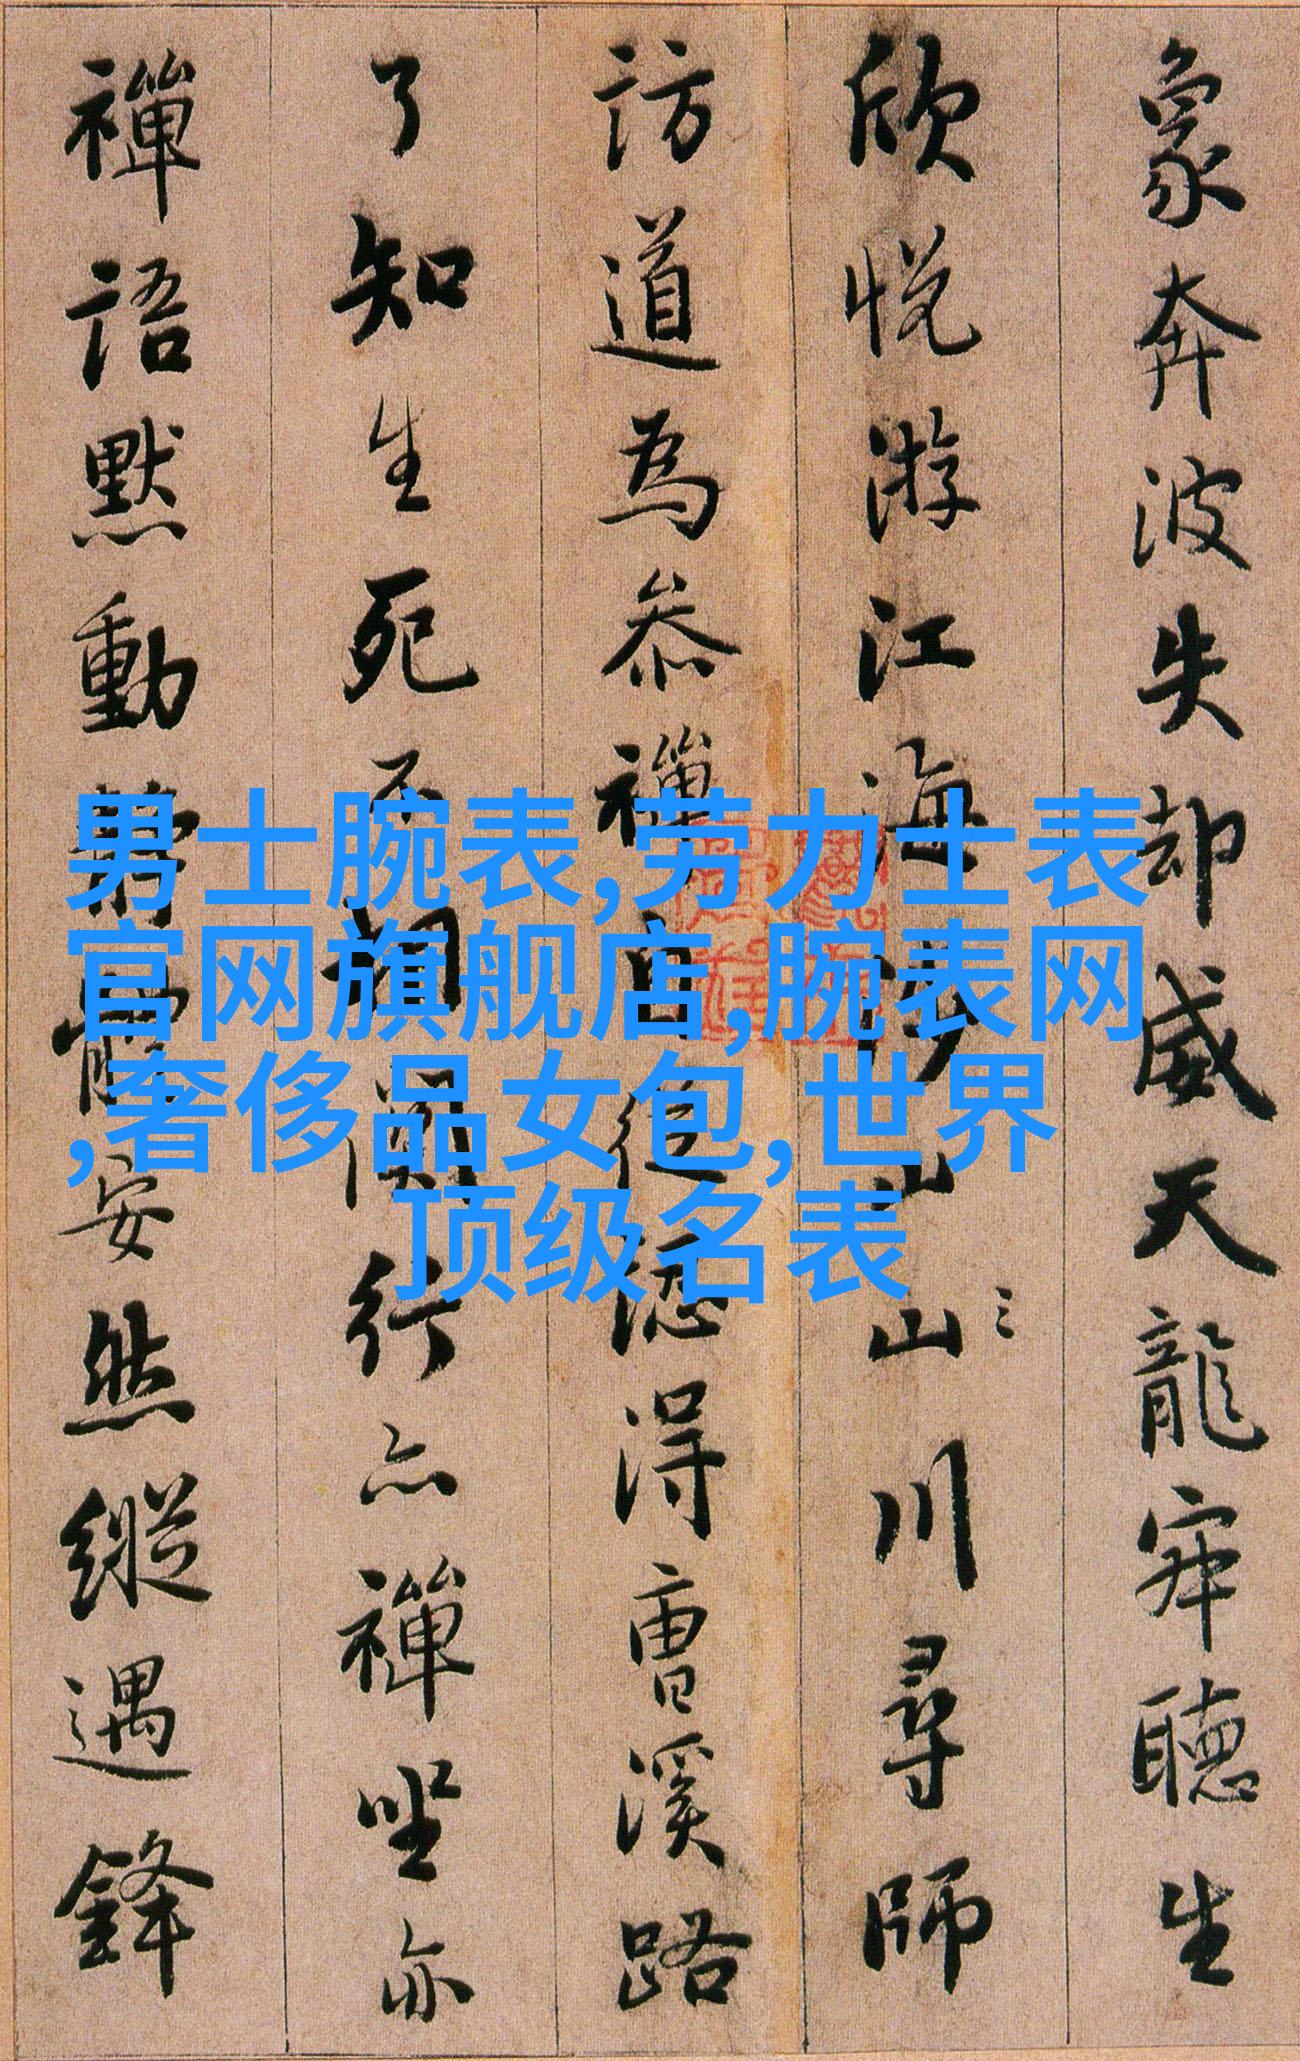 象奔波失却威天龍寂聽生
欣悅游江海涉山山川尋師
訪道為參禪自從認得曹溪路
了知生死不相關行亦禪坐亦
禪語默動静體安然縱遇鋒
男士腕表,劳力士表
官网旗舰店,腕表网
,奢侈品女包,世界
顶级名表